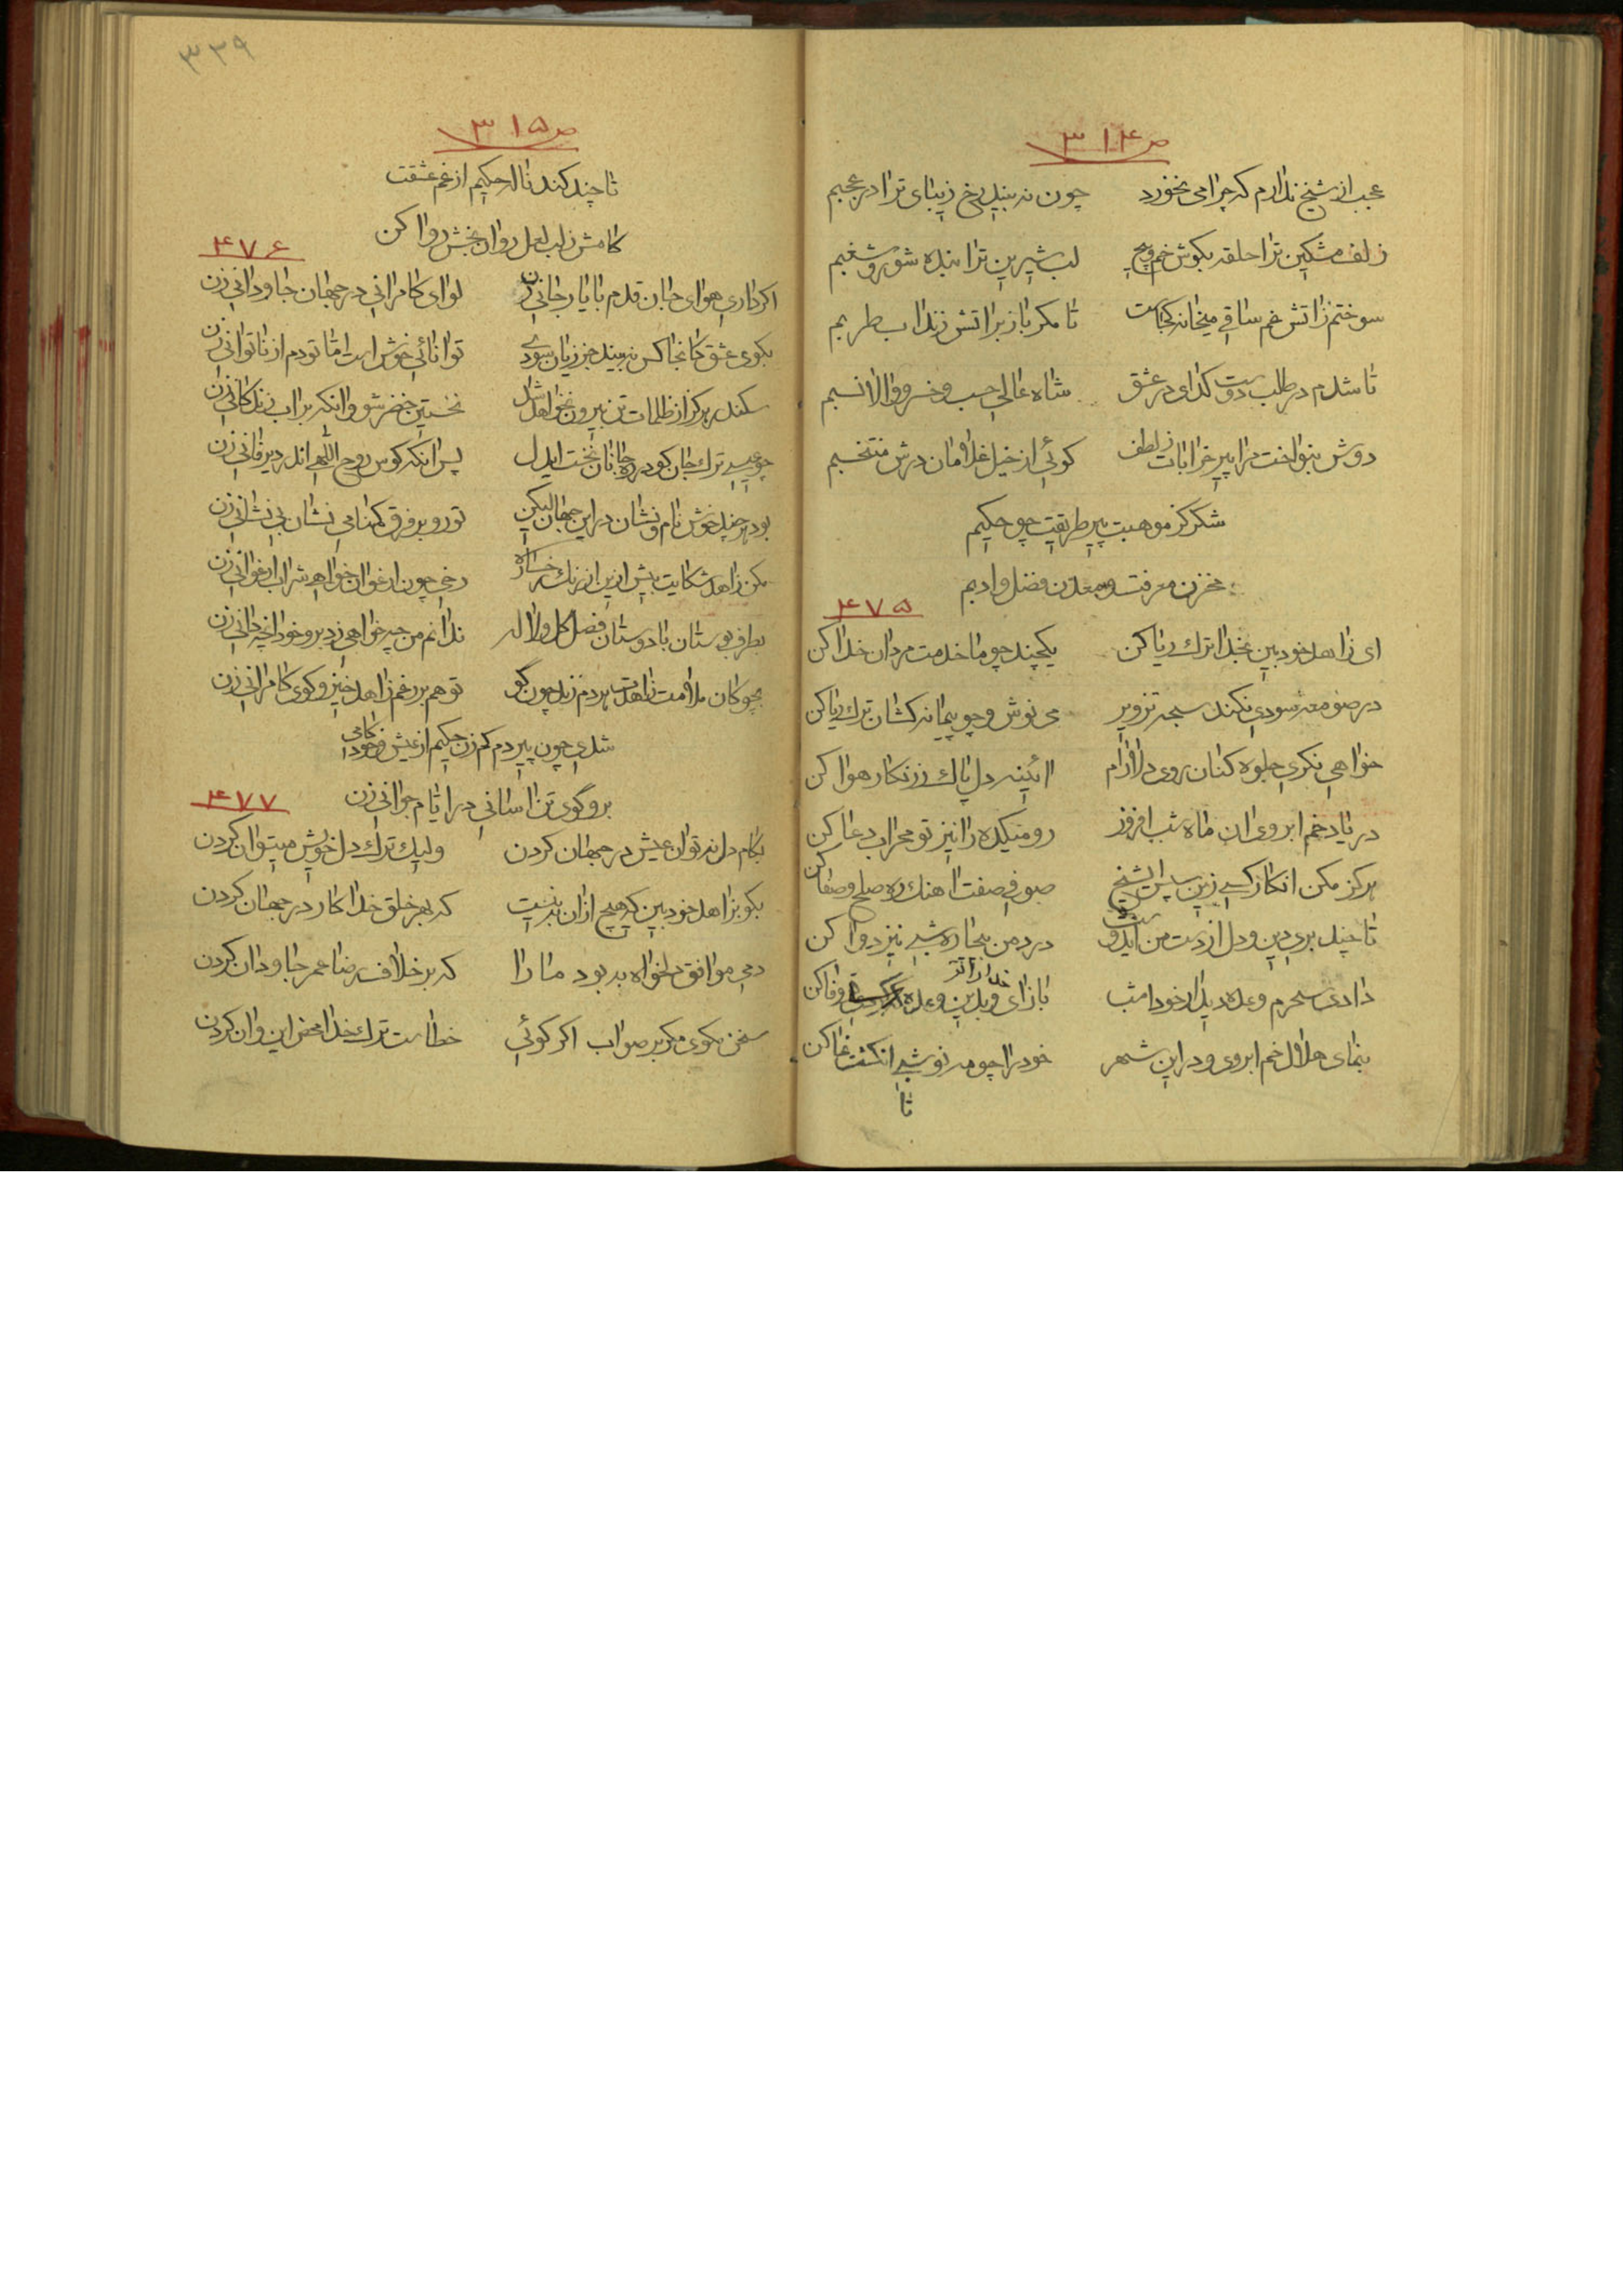 ص ۳۱۴
عجب از شیخ ندارم که چرا می نخورد چون نه بیند رخ زیبای ترا در عجبم
زلف مشکین ترا حلقه بکوش خم و پیچ لب شیرین ترا بنده شور و شغبم
سوختم زاتش غم ساقی میخانه کجاست تا مکر باز بر اتش زند اب طربم
تا شدم در طلب دوست کدای در عشق شاه عالی حسب و خسرو والا نسبم
دوش بنواخت مرا پیر خرابات ز لطف کوئی از خیل غلامان درش منتخبم
شکر کز موهبت پیر طریقت چو حکیم
مخزن معرفت و معدن فضل و ادبم
۴۷۵
ای زاهد خود بین بخدا ترک ریا کن یکچند چو ما خدمت مردان خدا کن
در صومعه سودی نکند سبحه تزویر می نوش و چو پیمانه کشان ترک ریا کن
خواهی نکری جلوه کنان روی دلارام ائینه دل پاک ز زنکار هوا کن
در یاد خم ابروی ان ماه شب افروز رو میکده را نیز تو محراب دعا کن
هرکز مکن انکار کسی زین سپس ای شیخ صوفی صفت اهنک ره صلح و صفا کن
تا چند بری دین و دل از دست من ایدوست درد من بیچاره شبی نیز دوا کن
دادی سحرم وعده دیدار خود امشب باز ای و بدین وعده خدا را تو وفا کن
بنمای هلال خم ابروی و در این شهر خود را چو مه نو شبی انکشت نما کن
تا
۳۳۹
ص ۳۱۵
تا چند کند ناله حکیم از غم عشقت
کامش ز لب لعل روان بخش روا کن
۴۷۶
اکر داری هوای جان قدم با یار جانی زن لوای کامرانی در جهان جاودانی زن
بکوی عشق کانجا کس نه بیند جز زیان سودی توانائی خوش است اما تو دم از ناتوانی زن
سکندر هرکز از ظلمات تن بیرون نخواهد شد نخستین خضر شو وانکه بر اب زندکانی زن
چو عیسی ترک جان کو در ره جانان نخست ایدل پس انکه کوس روح اللهی اندر دیر فانی زن
بود هر چند خوش نام و نشان در این جهان لیکن تو رو بر فرق کمنامی نشان بی نشانی زن
مکن زاهد شکایت بیش ازین از رنک رخساره رخی چون ارغوان خواهی شراب ارغوانی زن
بطرف بوستان با دوستان فصل کل و لاله ندانم من چه خواهی زد برو خود انچه دانی زن
بچوکان ملامت زاهدت هر دم زند چون کو تو هم بر رغم زاهد خیز و کوی کامرانی زن
شدی چون پیر دم کم زن حکیم از عیش و خودکامی
برو کوی تن اسانی در ایام جوانی زن
۴۷۷
بکام دل نه توان عیش در جهان کردن ولیک ترک دل خویش میتوان کردن
بکو بزاهد خود بین که هیچ ازان بد نیست که بهر خلق خدا کار در جهان کردن
دمی موافق دلخواه به بود ما را که بر خلاف رضا عمر جاودان کردن
سخن مکوی مکر بر صواب اکر کوئی خطاست ترک خدا محض این و ان کردن